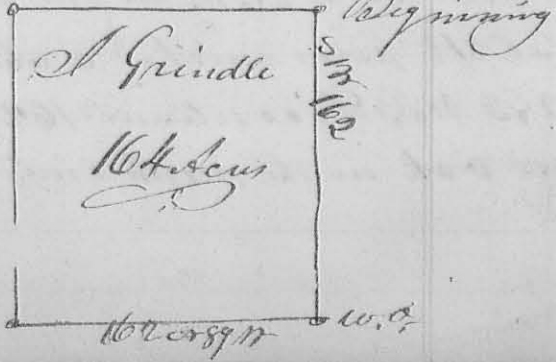 Beginning
J Grindle
164 Acres
162
162
W. O.